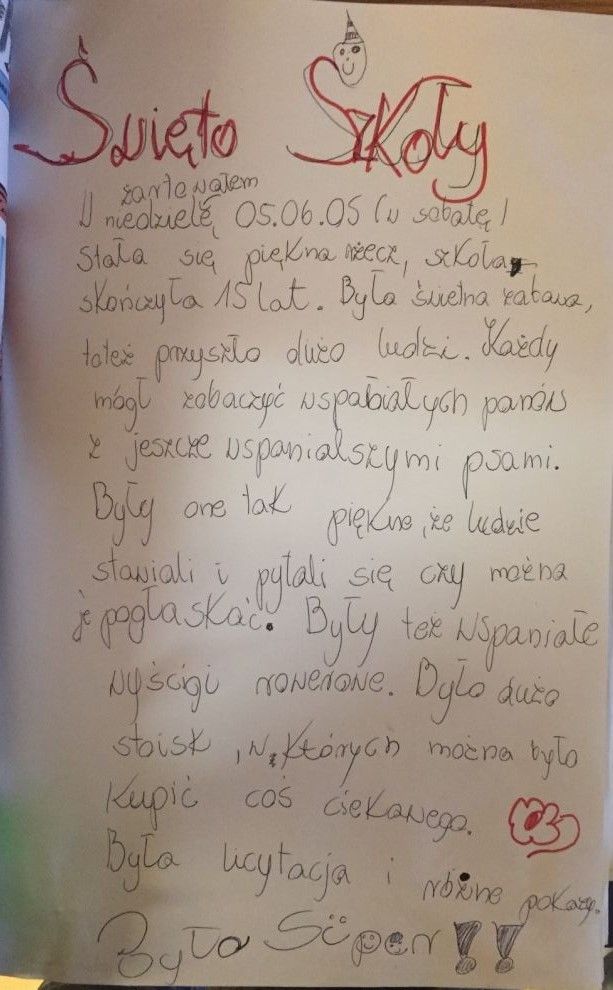 Święto Szkoły
żartowałem
W niedzielę 05.06.05 (w sobotę)
Stała się piękna rzecz, szkoła
skończyła 15 lat. Była świetna zabawa,
toteż przyszło dużo ludzi. Każdy
mógł zobaczyć wspabiałych panów
z jeszcze wspanialszymi psami.
Były one tak piękne, że ludzie
stawiali i pytali się czy można
je pogłaskać. Były też wspaniałe
wyścigi rowerowe. Było dużo
stoisk, w których można było
kupić coś ciekawego.
Była licytacja i różne pokazy.
Było Süper!!